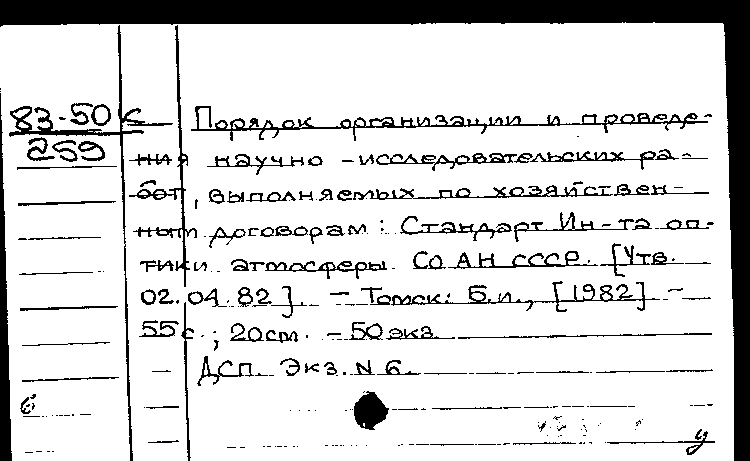 83-50к
259
Порядок организации и проведе-
ния научно-исследовательских ра-
бот, выполняемых по хозяйствен-
ным договорам: Стандарт Ин-та оп-
тики атмосферы СО АН СССР. [Утв.
02.04.82]. - Томск: Б.и., [1982] -
55 с.; 20 см. - 50 экз.
ДСП. Экз. N 6.
б
у